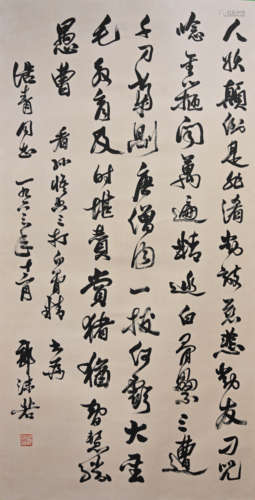 人妖顛倒是非淆對敵慈悲對友刁咒
念金箍聞萬遍精逃白骨累三遭
千刀當剮唐僧肉一拔何虧大聖
毛教育及時堪贊賞猪猶智慧勝
愚曹 看孙悟空三打白骨精 书为
浩青同志 一九六三年十二月 郭沫若